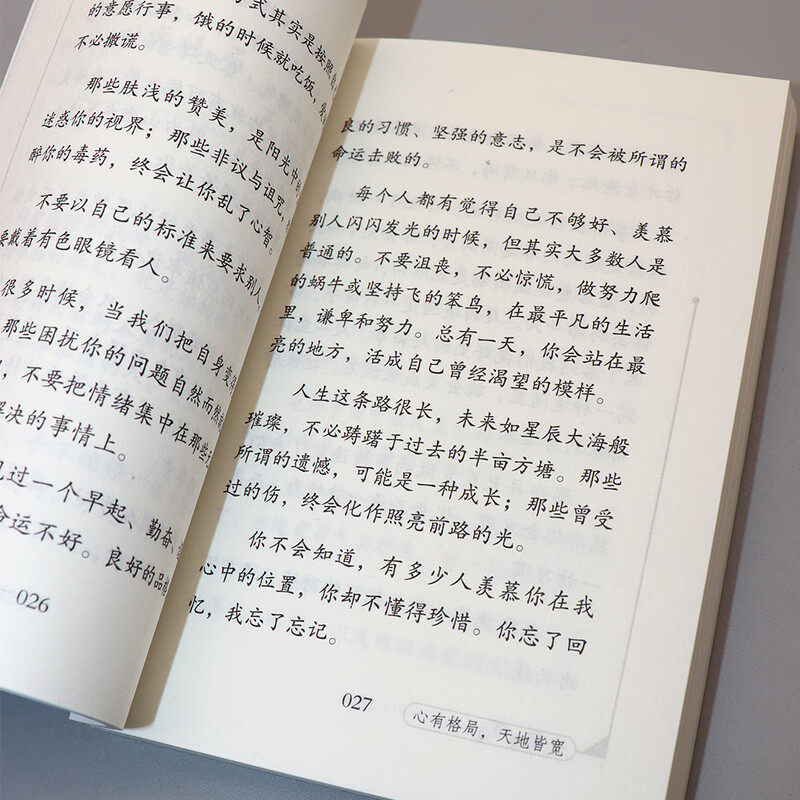 式其实是按照自
的意愿行事，饿的时候就吃饭，
不必撒谎。
那些肤浅的赞美，是阳光中的
迷惑你的视界；那些非议与诅咒，
醉你的毒药，终会让你乱了心智。
不要以自己的标准来要求别人，
要戴着有色眼镜看人。
很多时候，当我们把自身变
那些困扰你的问题自然而然
，不要把情绪集中在那些
解决的事情上。
见过一个早起、勤奋、
命运不好。良好的品
026
良的习惯、坚强的意志，是不会被所谓的
命运击败的。
每个人都有觉得自己不够好、羡慕
别人闪闪发光的时候，但其实大多数人是
普通的。不要沮丧，不必惊慌，做努力爬
的蜗牛或坚持飞的笨鸟，在最平凡的生活
里，谦卑和努力。总有一天，你会站在最
亮的地方，活成自己曾经渴望的模样。
人生这条路很长，未来如星辰大海般
璀璨，不必踌躇于过去的半亩方塘。那些
所谓的遗憾，可能是一种成长；那些曾受
过的伤，终会化作照亮前路的光。
你不会知道，有多少人羡慕你在我
心中的位置，你却不懂得珍惜。你忘了回
忆，我忘了忘记。
027
心有格局，天地皆宽